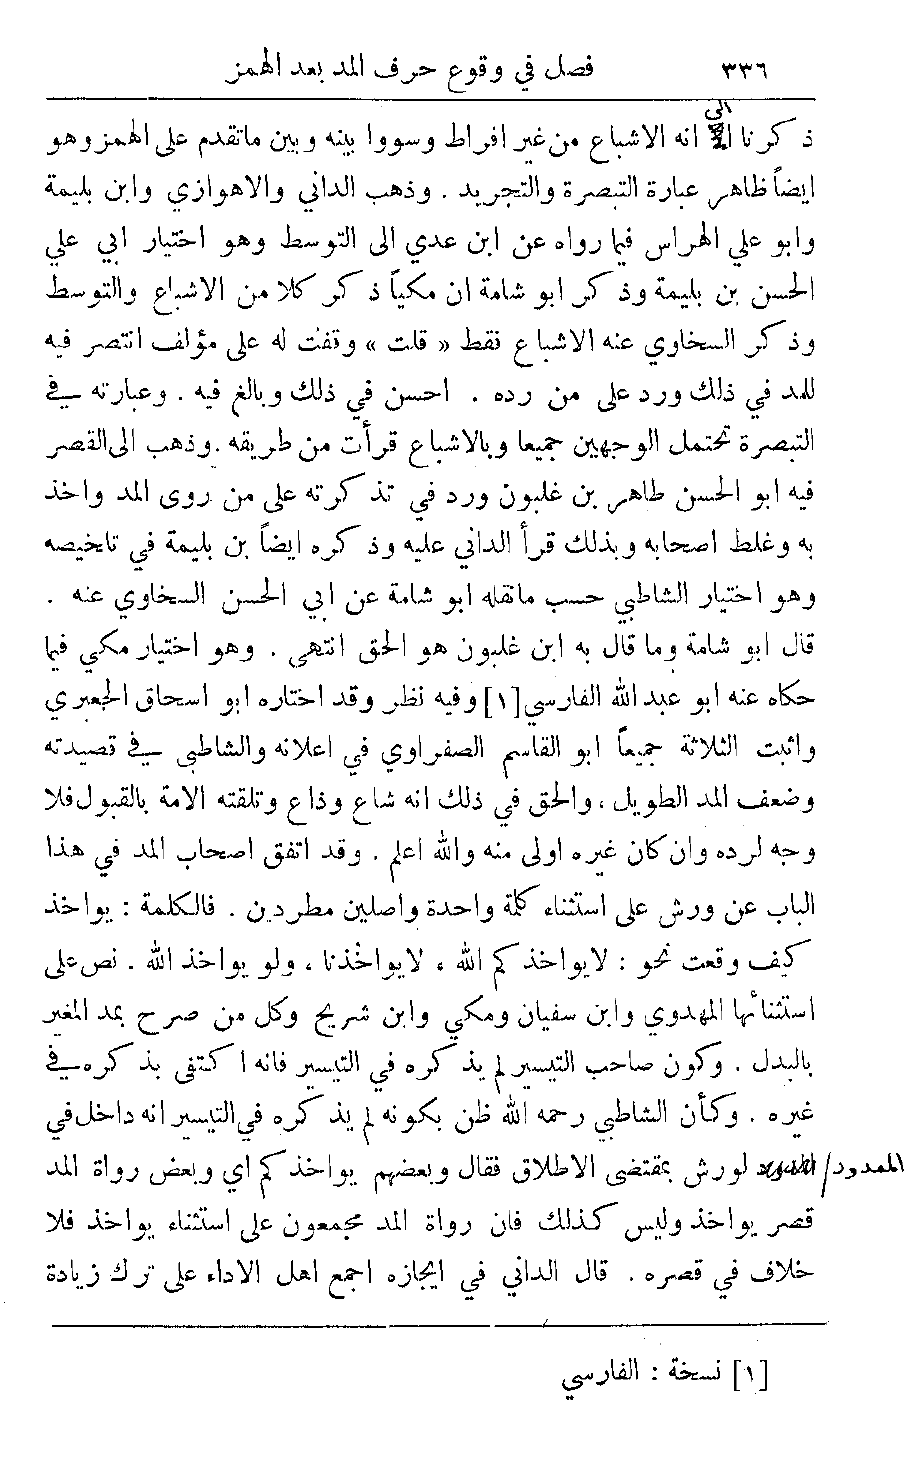 ٣٣٦ فصل في وقوع حرف المد بعد الهمز
الى
ذكرنا انه الاشباع من غير افراط وسووا بينه وبين ماتقدم على الهمز وهو
ايضاً ظاهر عبارة التبصرة والتجريد . وذهب الداني والاهوازي وابن بليمة
وابو علي الهراس فيما رواه عن ابن عدي الى التوسط وهو اختيار ابي علي
الحسن بن بليمة وذكر ابو شامة ان مكياً ذكر كلا من الاشباع والتوسط
وذكر السخاوي عنه الاشباع نقط « قلت » وقفت له على مؤلف انتصر فيه
للمد في ذلك ورد على من رده . احسن في ذلك وبالغ فيه . وعبارته في
التبصرة تحتمل الوجهين جميعا وبالاشباع قرأت من طريقه . وذهب الى القصر
فيه ابو الحسن طاهر بن غلبون ورد في تذكرته على من روى المد واخذ
به وغلط اصحابه وبذلك قرأ الداني عليه وذكره ايضاً بن بليمة في تلخيصه
وهو اختيار الشاطبي حسب مانقله ابو شامة عن ابي الحسن السخاوي عنه .
قال ابو شامة وما قال به ابن غلبون هو الحق انتهى . وهو اختيار مكي فيما
حكاه عنه ابو عبد الله الفارسي [١] وفيه نظر وقد اختاره ابو اسحاق الجعبري
واثبت الثلاثة جميعاً ابو القاسم الصفراوي في اعلانه والشاطبي في قصيدته
وضعف المد الطويل ، والحق في ذلك انه شاع وذاع وتلقته الامة بالقبول فلا
وجه لرده وان كان غيره اولى منه والله اعلم . وقد اتفق اصحاب المد في هذا
الباب عن ورش على استثناء كلمة واحدة واصلين مطردين . فالكلمة : يواخذ
كيف وقعت نحو : لايواخذكم الله ، لايواخذنا ، ولو يواخذ الله . نص على
استثنائها المهدوي وابن سفيان ومكي وابن شريح وكل من صرح بمد المغير
بالبدل . وكون صاحب التيسير لم يذكره في التيسير فانه اكتفى بذكره في
غيره . وكأن الشاطبي رحمه الله ظن بكونه لم يذكره في التيسير انه داخل في
الممدود/ لورش بمقتضى الاطلاق فقال وبعضهم يواخذكم اي وبعض رواة المد
قصر يواخذ وليس كذلك فان رواة المد مجمعون على استثناء يواخذ فلا
خلاف في قصره . قال الداني في ايجازه اجمع اهل الاداء على ترك زيادة
[١] نسخة : الفارسي